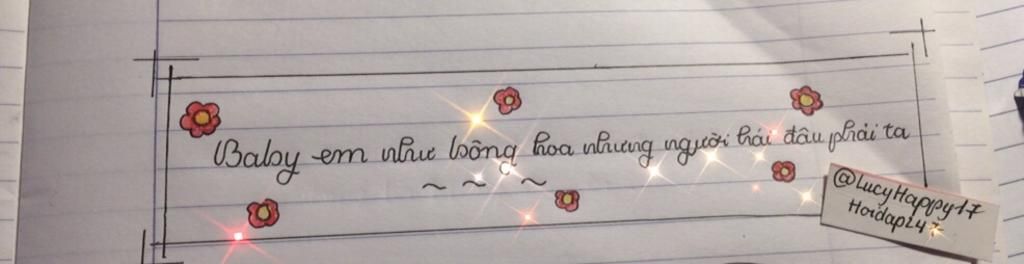 Baby em như bông hoa nhưng người hái đâu phải ta
~ ~ ~ ~
@LucyHappy17
Hoidap247